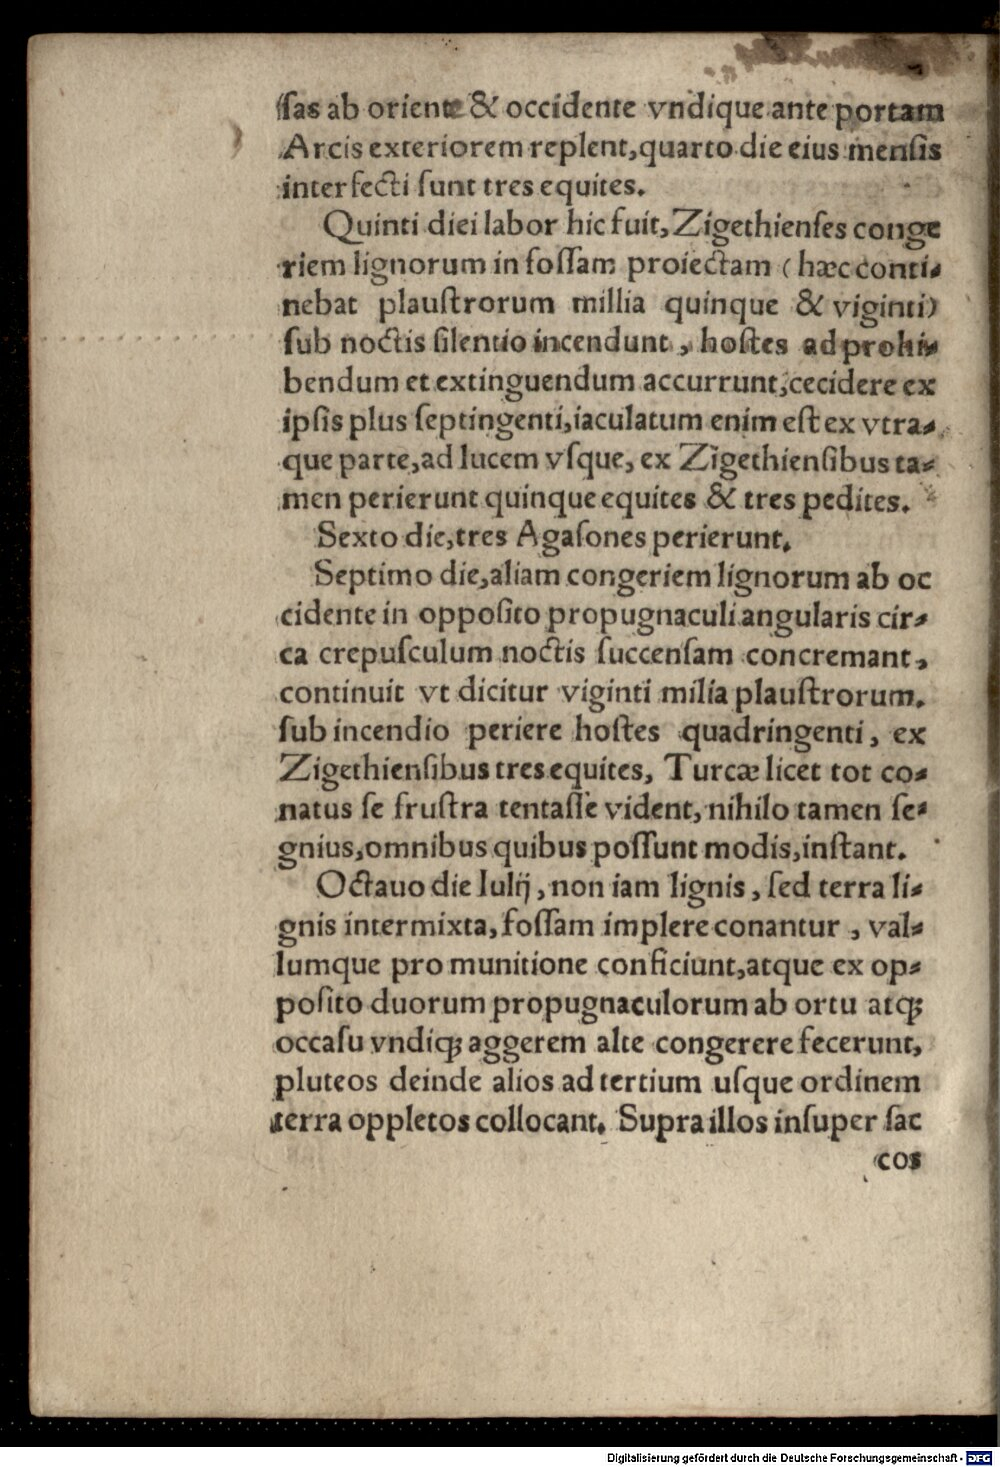 ſas ab oriente & occidente vndique ante portam
Arcis exteriorem replent, quarto die eius menſis
interfecti ſunt tres equites.
Quinti diei labor hic fuit, Zigethienſes conge
riem lignorum in foſſam proiectam (hæc conti⸗
nebat plauſtrorum millia quinque & viginti)
ſub noctis ſilentio incendunt, hoſtes ad prohi⸗
bendum et extinguendum accurrunt, cecidere ex
ipſis plus ſeptingenti, iaculatum enim eſt ex vtra⸗
que parte, ad lucem vſque, ex Zigethienſibus ta⸗
men perierunt quinque equites & tres pedites.
Sexto die, tres Agaſones perierunt.
Septimo die, aliam congeriem lignorum ab oc
cidente in oppoſito propugnaculi angularis cir⸗
ca crepuſculum noctis ſuccenſam concremant,
continuit vt dicitur viginti milia plauſtrorum.
ſub incendio periere hoſtes quadringenti, ex
Zigethienſibus tres equites, Turcæ licet tot co⸗
natus ſe fruſtra tentaſſe vident, nihilo tamen ſe⸗
gnius, omnibus quibus poſſunt modis, inſtant.
Octauo die Iulij, non iam lignis, ſed terra li⸗
gnis intermixta, foſſam implere conantur, val⸗
lumque pro munitione conficiunt, atque ex op⸗
poſito duorum propugnaculorum ab ortu atqꝫ
occaſu vndiqꝫ aggerem alte congerere fecerunt,
pluteos deinde alios ad tertium uſque ordinem
terra oppletos collocant. Supra illos inſuper ſac
cos
Digitalisierung gefördert durch die Deutsche Forschungsgemeinschaft - DFG